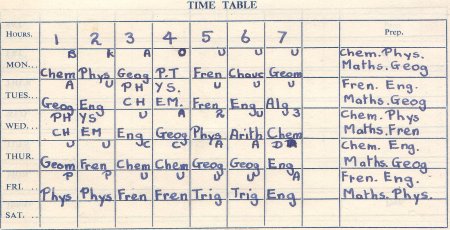 TIME TABLE
HOURS. 1 2 3 4 5 6 7 Prep.
B K A O U U U Chem. Phys.
MON... Chem Phys Geog P.T Fren Chauc Geom Maths. Geog
A U PH YS. U U U Fren. Eng.
TUES... Geog Eng CH EM. Fren Eng Alg Maths. Geog
PH YS U A 2 U 3 Chem. Phys
WED... CH EM Eng Geog Phys Arith Chem Maths. Fren
U U C C A A D Chem. Eng.
THUR. Geom Fren Chem Chem Geog Geog Eng Maths. Geog
P P U U U U A Fren. Eng.
FRI... Phys Phys Fren Fren Trig Trig Eng Maths. Phys.
SAT...